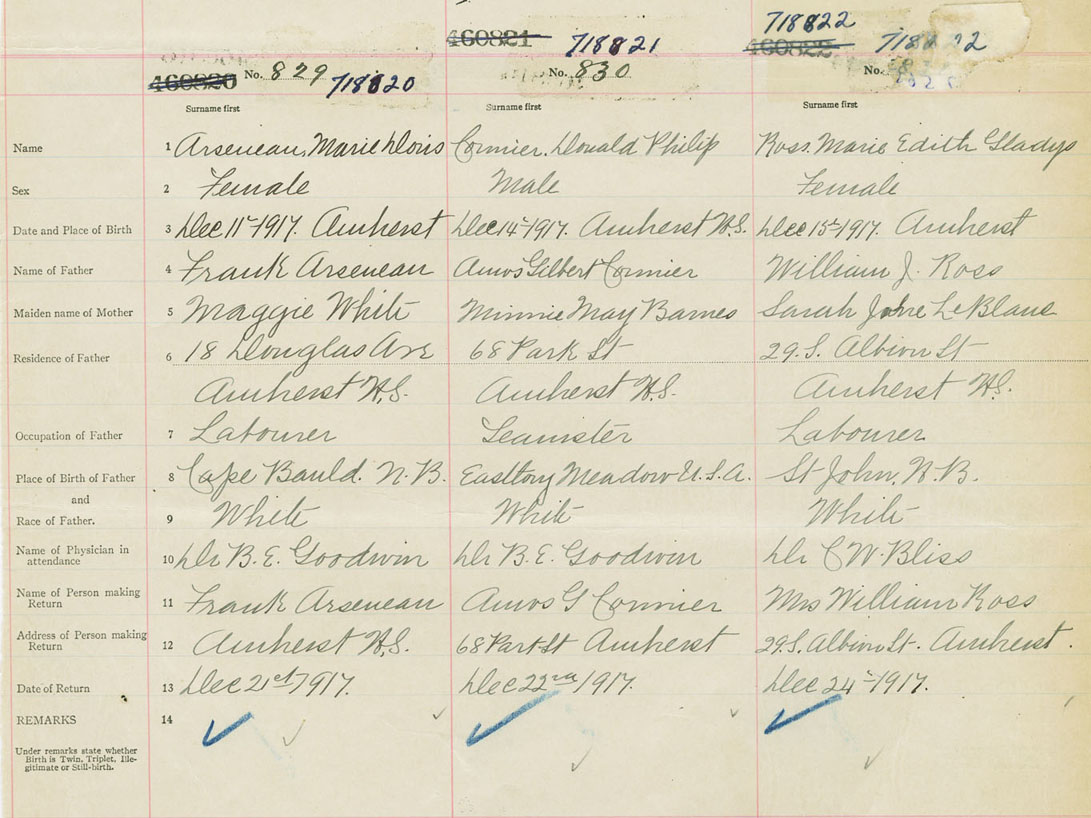 460821 718822
718821 460822
460820 No. 829 718820 No. 830 No.
Surname first Surname first Surname first
Name 1 Arseneau, Marie Doris Cormier. Donald Philip Ross. Marie Edith Gladys
Sex 2 Female Male Female
Date and Place of Birth 3 Dec 11th 1917. Amherst Dec 14th 1917. Amherst N.S. Dec 15th 1917. Amherst
Name of Father 4 Frank Arseneau Amos Gilbert Cormier William J. Ross
Maiden name of Mother 5 Maggie White Minnie May Barnes Sarah Jane LeBlanc
Residence of Father 6 18 Douglas Ave 68 Park St 29. S. Albion St
Amherst N.S. Amherst N.S. Amherst N.S.
Occupation of Father 7 Labourer Teamster Labourer
Place of Birth of Father 8 Cape Bauld. N.B. Meadow U.S.A. St John, N.B.
and
Race of Father. 9 White White White
Name of Physician in
attendance 10 Dr B. E. Goodwin Dr B. E. Goodwin Dr C W. Bliss
Name of Person making
Return 11 Frank Arseneau Amos G Cormier Mrs William Ross
Address of Person making
Return 12 Amherst N.S. 68 Park St Amherst 29. S. Albion St. Amherst.
Date of Return 13 Dec 21st 1917. Dec 22nd 1917. Dec 24th 1917.
REMARKS 14
Under remarks state whether
Birth is Twin, Triplet, Ille-
gitimate or Still-birth.